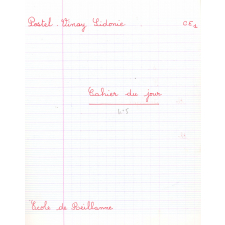 Postel. Vinay Sidonie. CE1
Cahier du jour
Ecole de Reillanne